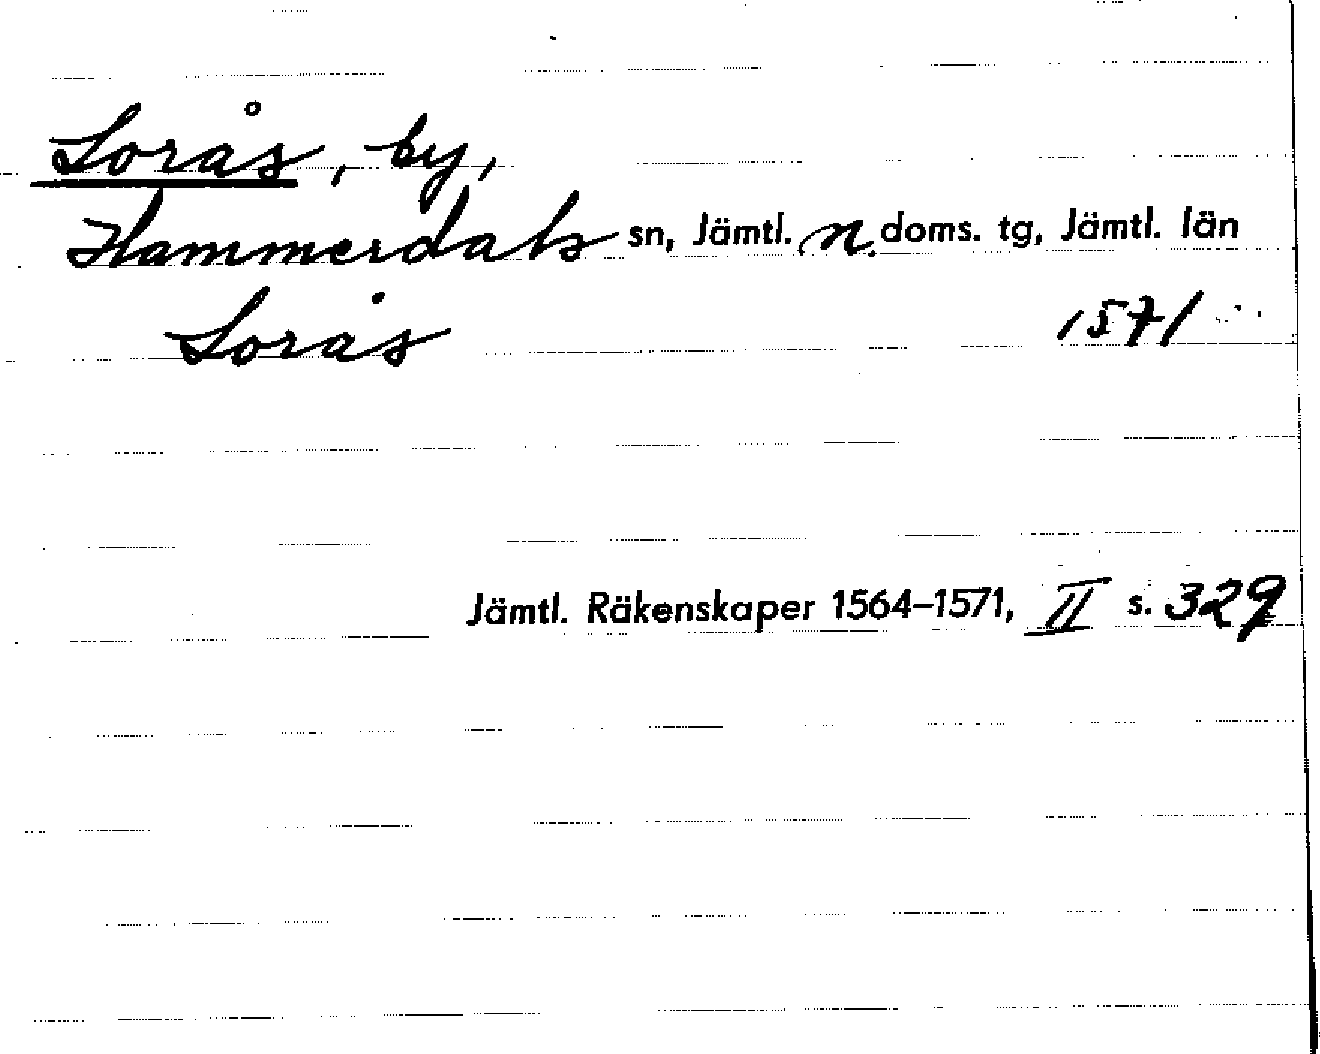 Lorås, by,
Hammerdals sn, Jämtl. n. doms. tg, Jämtl. län
Lorås 1571
Jämtl. Räkenskaper 1564–1571, II s. 329